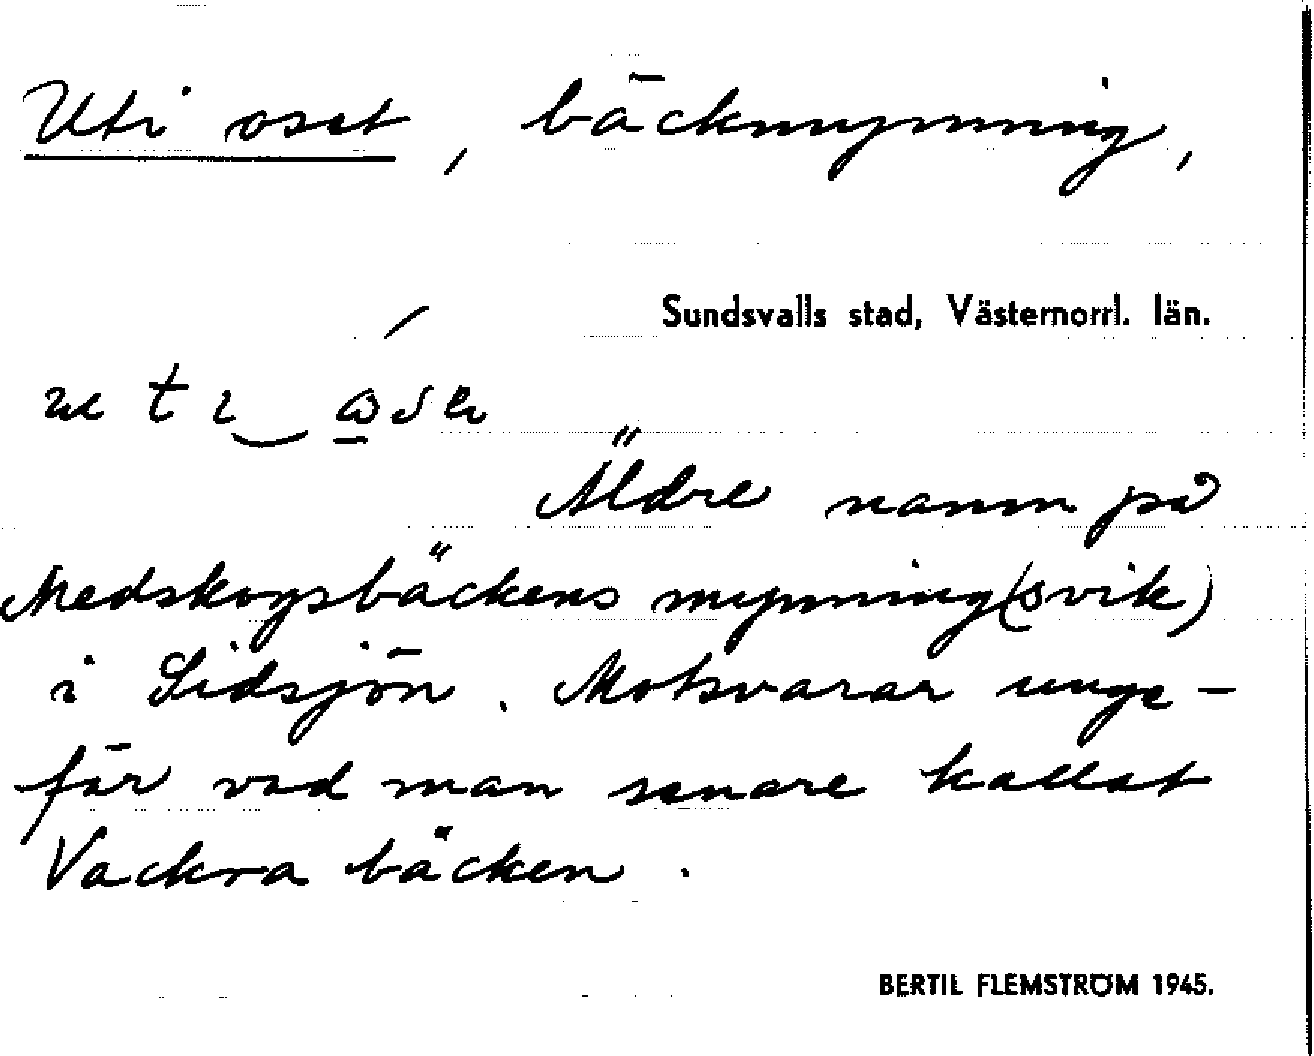 Uti oset, bäckmynning,
Sundsvalls stad, Västernorrl. län.
Äldre namn på
Medskogsbäckens mynning(svik)
i Sidsjön. Motsvarar unge-
fär vad man senare kallat
Vackra bäcken.
BERTIL FLEMSTRÖM 1945.